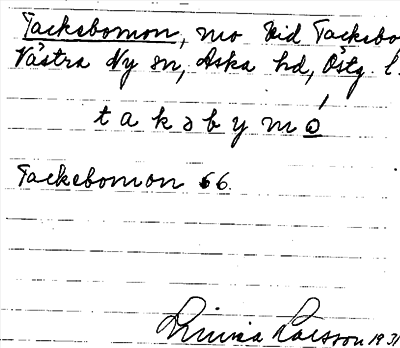 Tacksbomon, mo vid Tacksbo
Västra Ny sn, Aska hd, Östg. l.
takəbymó
Tacksbomon 66.
Linnéa Larsson 1931